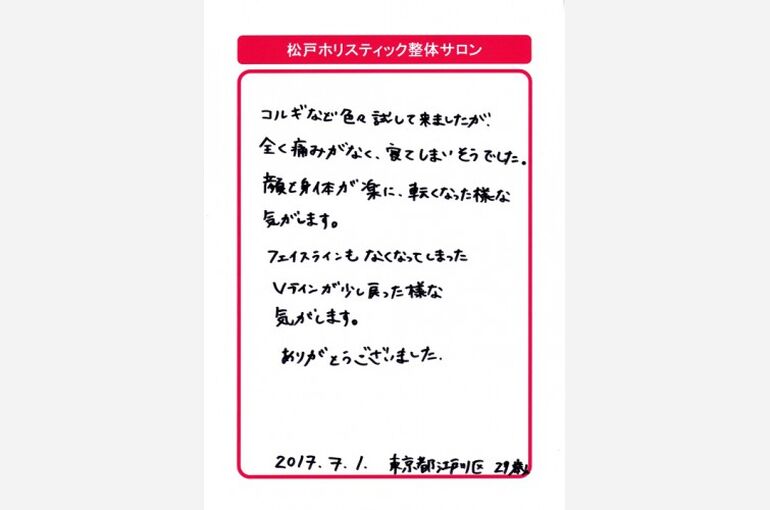 松戸ホリスティック整体サロン
コルギなど色々試して来ましたが、
全く痛みがなく、寝てしまいそうでした。
顔と身体が楽に、転くなった様な
気がします。
フェイスラインもなくなってしまった
Vラインが少し戻った様な
気がします。
ありがとうございました.
2017.7.1. 東京都江戸川区 29歳